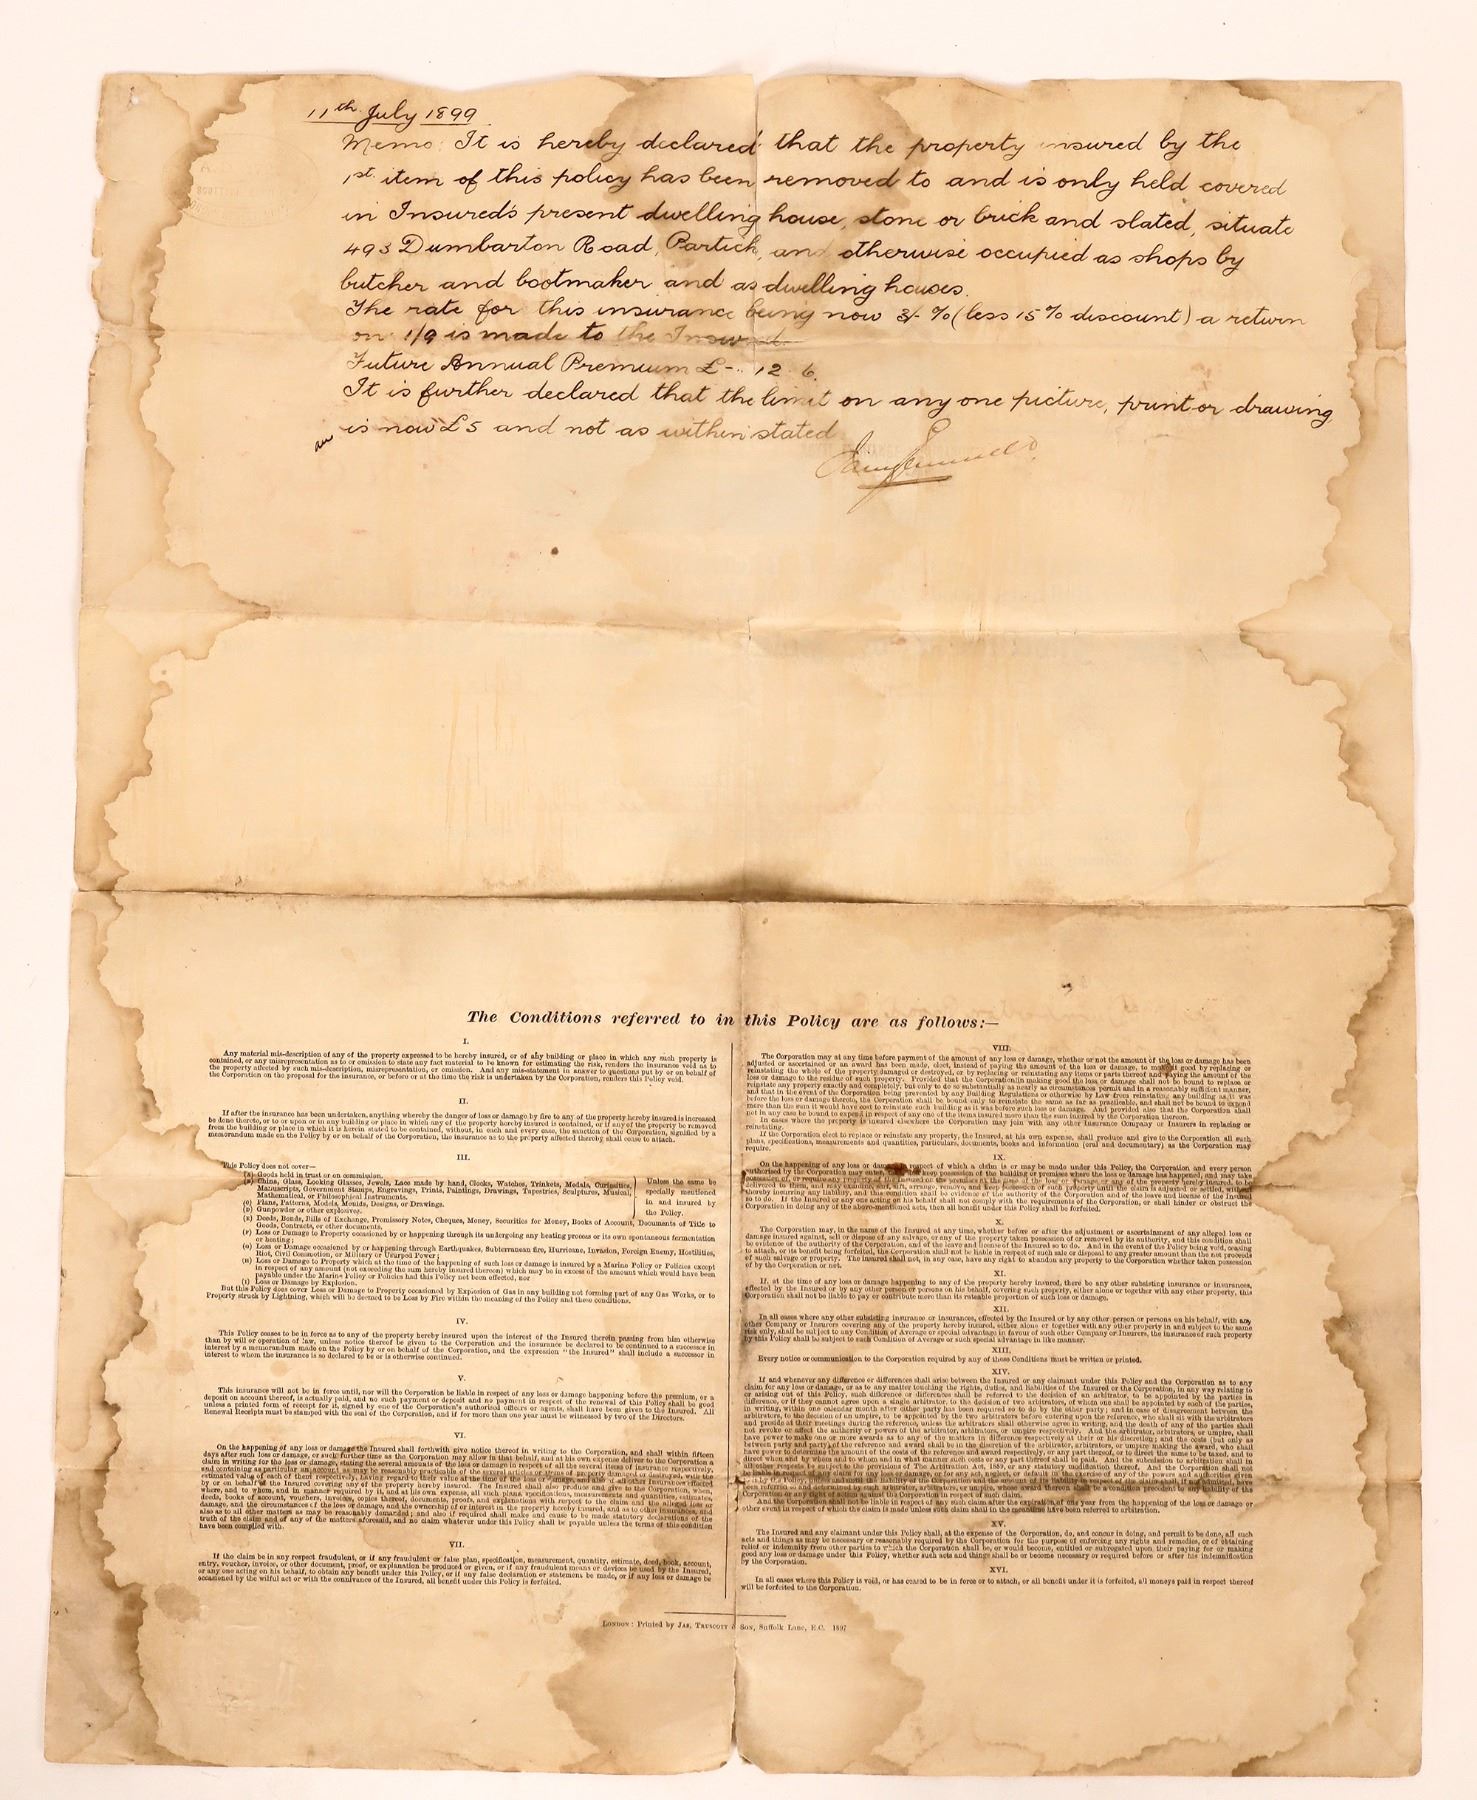 11th July 1899
Memo: It is hereby declared that the property insured by the
1st item of this policy has been removed to and is only held covered
in Insured's present dwelling house, stone or brick and slated, situate
493 Dumbarton Road, Partick, and otherwise occupied as shops by
butcher and bootmaker and as dwelling houses.
The rate for this insurance being now 3/- % (less 15% discount) a return
on 1/9 is made to the Insured.
Future Annual Premium £-.. 12. 6.
It is further declared that the limit on any one picture, print or drawing
is now £5 and not as within stated
The Conditions referred to in this Policy are as follows:—
I.
Any material mis-description of any of the property expressed to be hereby insured, or of any building or place in which any such property is
contained, or any misrepresentation as to or omission to state any fact material to be known for estimating the risk, renders the insurance void as to
the property affected by such mis-description, misrepresentation, or omission. And any mis-statement in answer to questions put by or on behalf of
the Corporation on the proposal for the insurance, or before or at the time the risk is undertaken by the Corporation, renders this Policy void.
II.
If after the insurance has been undertaken, anything whereby the danger of loss or damage by fire to any of the property hereby insured is increased
be done thereto, or to or upon or in any building or place in which any of the property hereby insured is contained, or if any of the property be removed
from the building or place in which it is herein stated to be contained, without, in each and every case, the sanction of the Corporation, signified by a
memorandum made on the Policy by or on behalf of the Corporation, the insurance as to the property affected thereby shall cease to attach.
III.
This Policy does not cover—
(A) Goods held in trust or on commission.
(B) China, Glass, Looking Glasses, Jewels, Lace made by hand, Clocks, Watches, Trinkets, Medals, Curiosities,
Manuscripts, Government Stamps, Engravings, Prints, Paintings, Drawings, Tapestries, Sculptures, Musical,
Mathematical, or Philosophical Instruments.
(C) Plans, Patterns, Models, Moulds, Designs, or Drawings.
(D) Gunpowder or other explosives.
Unless the same be
specially mentioned
in and insured by
the Policy.
(E) Deeds, Bonds, Bills of Exchange, Promissory Notes, Cheques, Money, Securities for Money, Books of Account, Documents of Title to
Goods, Contracts, or other documents.
(F) Loss or Damage to Property occasioned by or happening through its undergoing any heating process or its own spontaneous fermentation
or heating;
(G) Loss or Damage occasioned by or happening through Earthquakes, Subterranean fire, Hurricane, Invasion, Foreign Enemy, Hostilities,
Riot, Civil Commotion, or Military or Usurped Power;
(H) Loss or Damage to Property which at the time of the happening of such loss or damage is insured by a Marine Policy or Policies except
in respect of any amount (not exceeding the sum hereby insured thereon) which may be in excess of the amount which would have been
payable under the Marine Policy or Policies had this Policy not been effected, nor
(I) Loss or Damage by Explosion.
But this Policy does cover Loss or Damage to Property occasioned by Explosion of Gas in any building not forming part of any Gas Works, or to
Property struck by Lightning, which will be deemed to be Loss by Fire within the meaning of the Policy and these conditions.
IV.
This Policy ceases to be in force as to any of the property hereby insured upon the interest of the Insured therein passing from him otherwise
than by will or operation of law, unless notice thereof be given to the Corporation and the insurance be declared to be continued to a successor in
interest by a memorandum made on the Policy by or on behalf of the Corporation, and the expression "the Insured" shall include a successor in
interest to whom the insurance is so declared to be or is otherwise continued.
V.
This insurance will not be in force until, nor will the Corporation be liable in respect of any loss or damage happening before the premium, or a
deposit on account thereof, is actually paid, and no such payment or deposit and no payment in respect of the renewal of this Policy shall be good
unless a printed form of receipt for it, signed by one of the Corporation's authorised officers or agents, shall have been given to the Insured. All
Renewal Receipts must be stamped with the seal of the Corporation, and if for more than one year must be witnessed by two of the Directors.
VI.
On the happening of any loss or damage the Insured shall forthwith give notice thereof in writing to the Corporation, and shall within fifteen
days after such loss or damage, or such further time as the Corporation may allow in that behalf, and at his own expense deliver to the Corporation a
claim in writing for the loss or damage, stating the several amounts of the loss or damage in respect of all the several items of insurance respectively,
and containing as particular an account as may be reasonably practicable of the several articles or items of property damaged or destroyed, with the
estimated value of each of them respectively, having regard to their value at the time of the loss or damage, and also if all other insurances effected
by or on behalf of the Insured covering any of the property hereby insured. The Insured shall also produce and give to the Corporation, when,
where, and to whom, and in manner required by it, and at his own expense, all such plans, specifications, measurements and quantities, estimates,
deeds, books of account, vouchers, invoices, copies thereof, documents, proofs, and explanations with respect to the claim and the alleged loss or
damage, and the circumstances of the loss or damage, and the ownership of or interest in the property hereby insured, and as to other insurances, and
also as to all other matters as may be reasonably demanded; and also if required shall make and cause to be made statutory declarations of the
truth of the claim and of any of the matters aforesaid, and no claim whatever under this Policy shall be payable unless the terms of this condition
have been complied with.
VII.
If the claim be in any respect fraudulent, or if any fraudulent or false plan, specification, measurement, quantity, estimate, deed, book, account,
entry, voucher, invoice, or other document, proof, or explanation be produced or given, or if any fraudulent means or devices be used by the Insured,
or any one acting on his behalf, to obtain any benefit under this Policy, or if any false declaration or statement be made, or if any loss or damage be
occasioned by the wilful act or with the connivance of the Insured, all benefit under this Policy is forfeited.
VIII.
The Corporation may at any time before payment of the amount of any loss or damage, whether or not the amount of the loss or damage has been
adjusted or ascertained or an award has been made, elect, instead of paying the amount of the loss or damage, to make it good by replacing or
reinstating the whole of the property damaged or destroyed, or by replacing or reinstating any items or parts thereof and paying the amount of the
loss or damage to the residue of such property. Provided that the Corporation in making good the loss or damage shall not be bound to replace or
reinstate any property exactly and completely, but only to do so substantially as nearly as circumstances permit and in a reasonably sufficient manner,
and that in the event of the Corporation being prevented by any Building Regulations or otherwise by Law from reinstating any building as it was
before the loss or damage thereto, the Corporation shall be bound only to reinstate the same as far as practicable, and shall not be bound to expend
more than the sum it would have cost to reinstate such building as it was before such loss or damage. And provided also that the Corporation shall
not in any case be bound to expend in respect of any one of the items insured more than the sum insured by the Corporation thereon.
In cases where the property is insured elsewhere the Corporation may join with any other Insurance Company or Insurers in replacing or
reinstating.
If the Corporation elect to replace or reinstate any property, the Insured, at his own expense, shall produce and give to the Corporation all such
plans, specifications, measurements and quantities, particulars, documents, books and information (oral and documentary) as the Corporation may
require.
IX.
On the happening of any loss or damage in respect of which a claim is or may be made under this Policy, the Corporation and every person
authorised by the Corporation may enter, take and keep possession of the building or premises where the loss or damage has happened, and may take
possession of, or require any property of the Insured on the premises at the time of the loss or damage or any of the property hereby insured, to be
delivered to them, and may examine, sort, arrange, remove, and keep possession of such property until the claim is adjusted or settled, without
thereby incurring any liability, and this condition shall be evidence of the authority of the Corporation and of the leave and license of the Insured
so to do. If the Insured or any one acting on his behalf shall not comply with the requirements of the Corporation, or shall hinder or obstruct the
Corporation in doing any of the above-mentioned acts, then all benefit under this Policy shall be forfeited.
X.
The Corporation may, in the name of the Insured at any time, whether before or after the adjustment or ascertainment of any alleged loss or
damage insured against, sell or dispose of any salvage, or any of the property taken possession of or removed by its authority, and this condition shall
be evidence of the authority of the Corporation, and of the leave and license of the Insured so to do. And in the event of the Policy being void, ceasing
to attach, or its benefit being forfeited, the Corporation shall not be liable in respect of such sale or disposal to any greater amount than the net proceeds
of such salvage or property. The Insured shall not, in any case, have any right to abandon any property to the Corporation whether taken possession
of by the Corporation or not.
XI.
If, at the time of any loss or damage happening to any of the property hereby insured, there be any other subsisting insurance or insurances,
effected by the Insured or by any other person or persons on his behalf, covering such property, either alone or together with any other property, this
Corporation shall not be liable to pay or contribute more than its rateable proportion of such loss or damage.
XII.
In all cases where any other subsisting insurance or insurances, effected by the Insured or by any other person or persons on his behalf, with any
other Company or Insurers covering any of the property hereby insured, either alone or together with any other property in and subject to the same
risk only, shall be subject to any Condition of Average or special advantage in favour of such other Company or Insurers, the insurance of such property
by this Policy shall be subject to such Condition of Average or such special advantage in like manner.
XIII.
Every notice or communication to the Corporation required by any of these Conditions must be written or printed.
XIV.
If and whenever any difference or differences shall arise between the Insured or any claimant under this Policy and the Corporation as to any
claim for any loss or damage, or as to any matter touching the rights, duties, and liabilities of the Insured or the Corporation, in any way relating to
or arising out of this Policy, such difference or differences shall be referred to the decision of an arbitrator, to be appointed by the parties in
difference, or if they cannot agree upon a single arbitrator, to the decision of two arbitrators, of whom one shall be appointed by each of the parties,
in writing, within one calendar month after either party has been required so to do by the other party; and in case of disagreement between the
arbitrators, to the decision of an umpire, to be appointed by the two arbitrators before entering upon the reference, who shall sit with the arbitrators
and preside at their meetings during the reference, unless the arbitrators otherwise agree in writing, and the death of any of the parties shall
not revoke or affect the authority or powers of the arbitrator, arbitrators, or umpire respectively. And the arbitrator, arbitrators, or umpire, shall
have power to make one or more awards as to any of the matters in difference respectively at their or his discretion; and the costs (but only as
between party and party) of the reference and award shall be in the discretion of the arbitrator, arbitrators, or umpire making the award, who shall
have power to determine the amount of the costs of the reference and award respectively, or any part thereof, or to direct the same to be taxed, and to
direct when and by whom and to whom and in what manner such costs or any part thereof shall be paid. And the submission to arbitration shall in
all other respects be subject to the provisions of The Arbitration Act, 1889, or any statutory modification thereof. And the Corporation shall not
be liable in respect of any claim for any loss or damage, or for any act, neglect, or default in the exercise of any of the powers and authorities given
been referred to and determined by such arbitrator, arbitrators, or umpire, whose award thereon shall be a condition precedent to any liability of the
Corporation or any right of action against the Corporation in respect of such claim.
And the Corporation shall not be liable in respect of any such claim after the expiration of one year from the happening of the loss or damage or
other event in respect of which the claim is made unless such claim shall in the meantime have been referred to arbitration.
XV.
The Insured and any claimant under this Policy shall, at the expense of the Corporation, do, and concur in doing, and permit to be done, all such
acts and things as may be necessary or reasonably required by the Corporation for the purpose of enforcing any rights and remedies, or of obtaining
relief or indemnity from other parties to which the Corporation shall be, or would become, entitled or subrogated upon their paying for or making
good any loss or damage under this Policy, whether such acts and things shall be or become necessary or required before or after his indemnification
by the Corporation.
XVI.
In all cases where this Policy is void, or has ceased to be in force or to attach, or all benefit under it is forfeited, all moneys paid in respect thereof
will be forfeited to the Corporation.
LONDON: Printed by JAS. TRUSCOTT & SON, Suffolk Lane, E.C. 1897